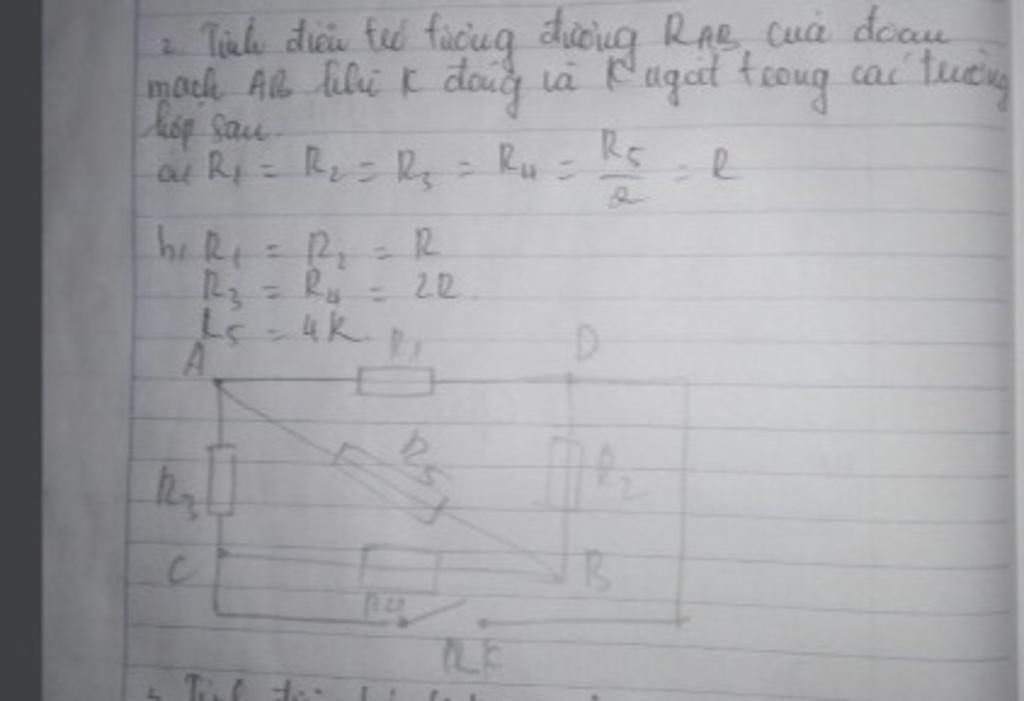 2. Tính điện trở tương đương RAB của đoạn
mạch AB khi K đóng và K ngắt trong các trường
hợp sau
a, R1 = R2 = R3 = R4 = R5/2 = R
b, R1 = R2 = R
R3 = R4 = 2R
R5 = 4R
A R1 D
R5
R3 R2
C B
R4
K